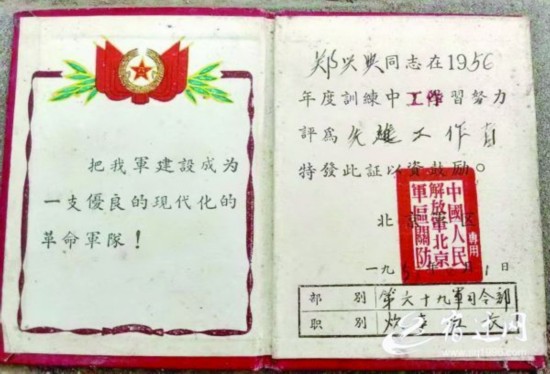 把我軍建設成為
一支優良的現代化的
革命軍隊！
郑兴興同志在1956
年度訓練中工作学習努力
評為先進工作者
特發此証以資鼓励。
北
中國人民
解放軍北京
軍區關防
專用
一九 日
部別 第六十九軍司令部
职別
宿迁网